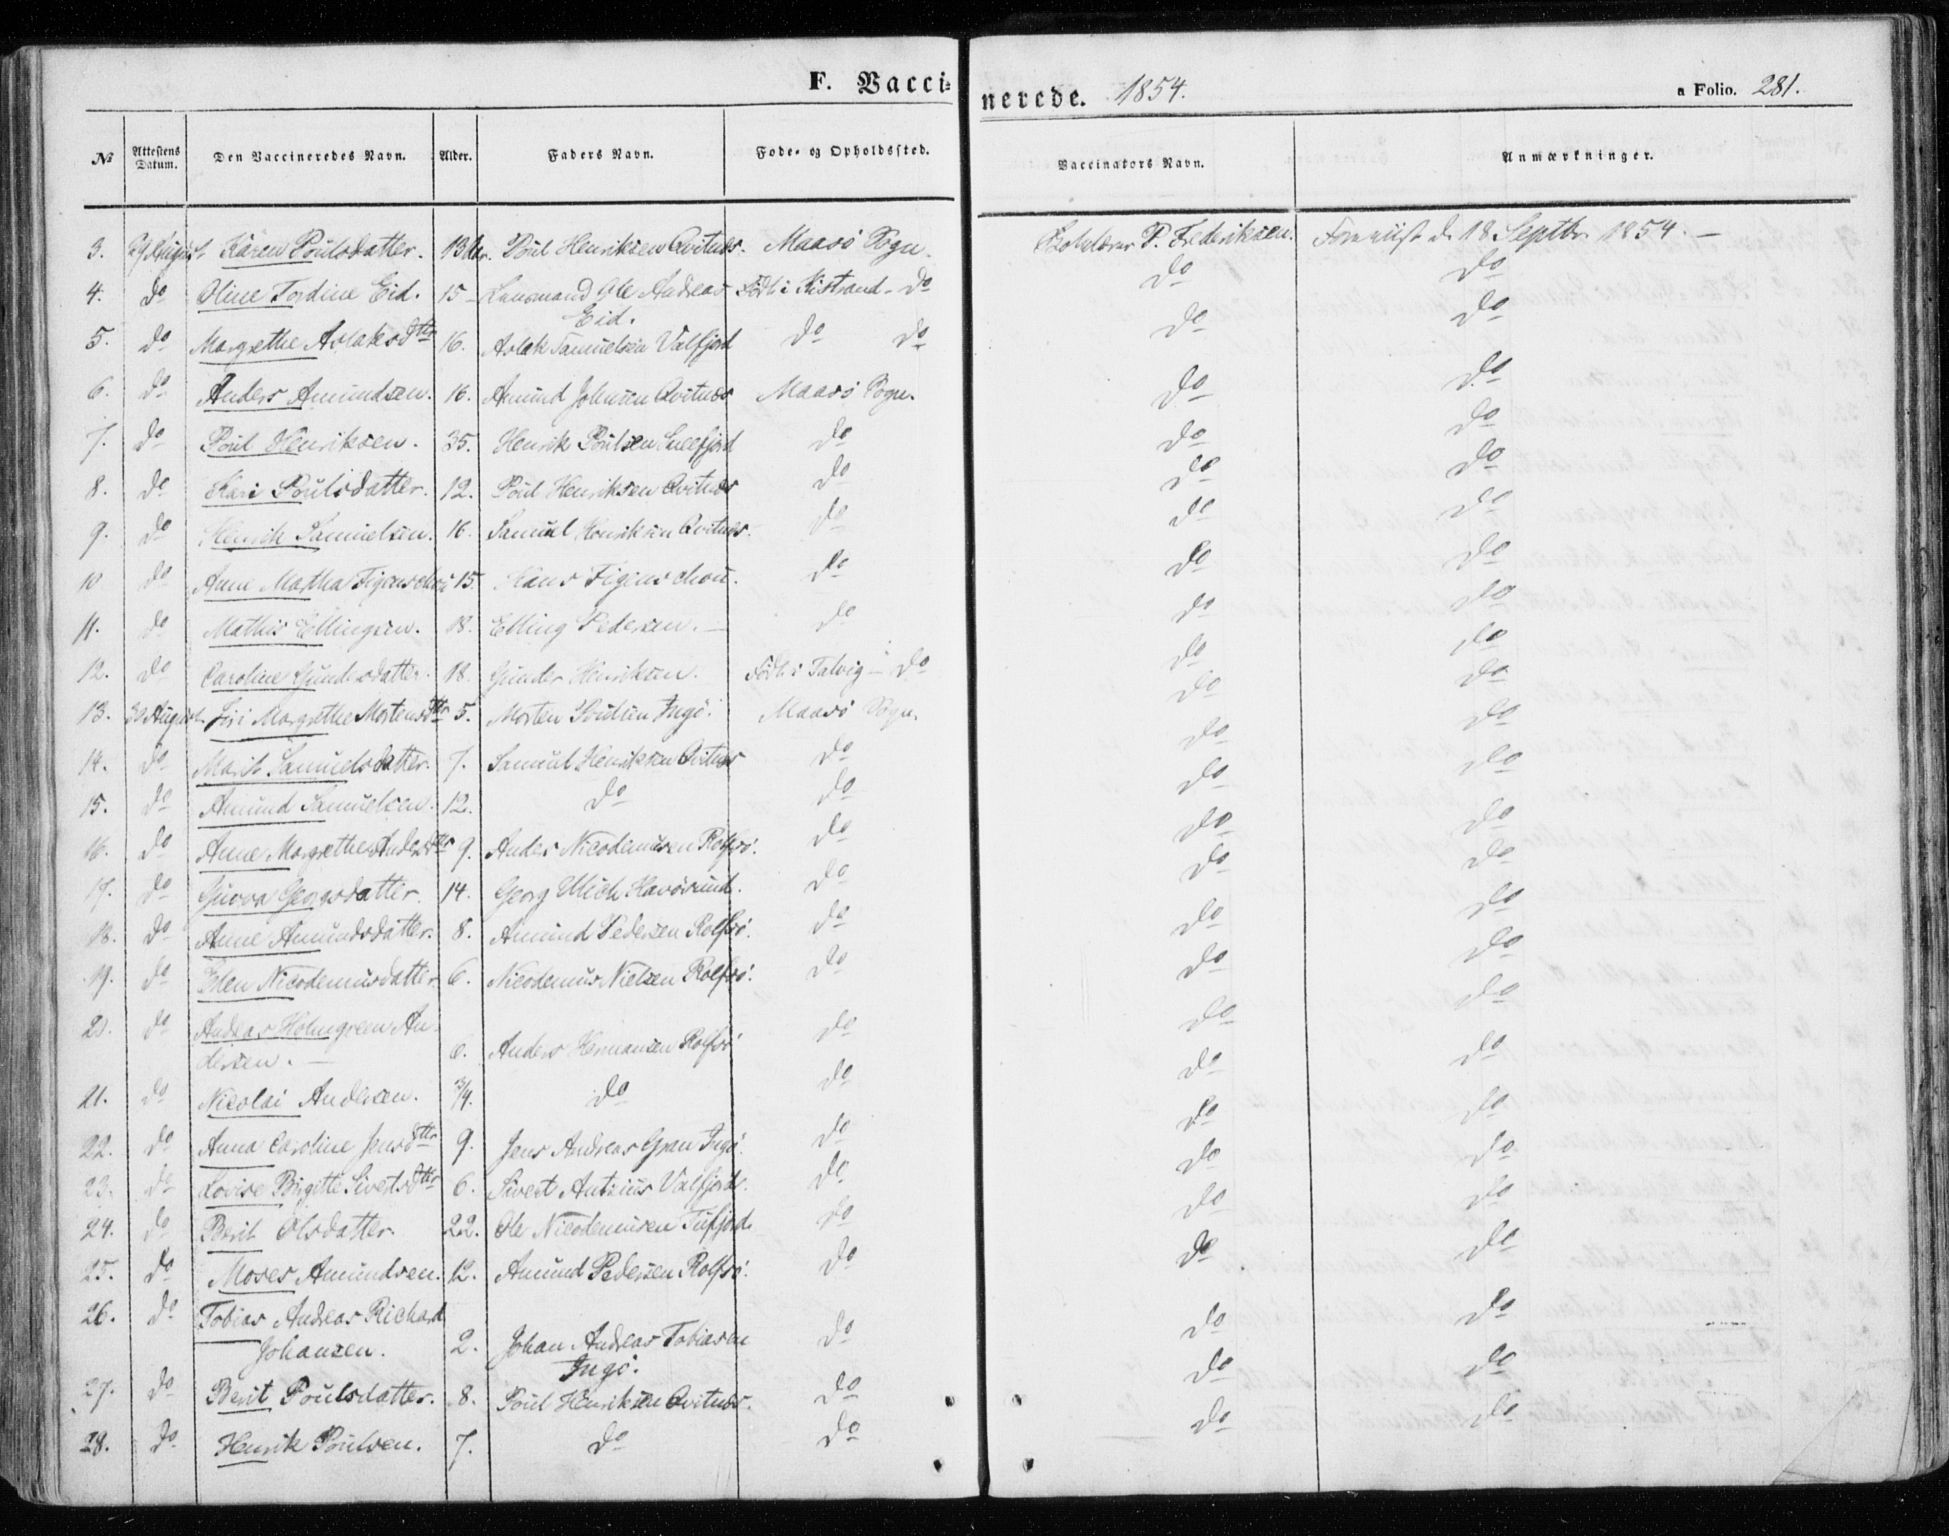 F. Vaccinerede. 1854.
a Folio. 281.
№ | Attestens Datum. | Den Vaccineredes Navn. | Alder. | Faders Navn. | Føde- og Opholdssted. | Vaccinators Navn. | Anmærkninger.
3. | August | Karen Poulsdatter. | 13 | Poul Henriksen Qvitnæs. | Maasø Sogn. | P. Frederiksen. | d. 18 Septbr 1854. —
4. | do | Oline Tordine Eid. | 15 | Ole Andreas Eid. | Født i Kistrand - do | do | do
5. | do | Margrethe Aslaksdttr | 16. | Aslak Samuelsen Valfjord | do do | do | do
6. | do | Anders Amundsen. | 16. | Amund Johnsen Qvitnæs | Maasø Sogn. | do | do
7. | do | Poul Henriksen. | 35. | Henrik Poulsen Sneefjord | do | do | do
8. | do | Kari Poulsdatter. | 12. | Poul Henriksen Qvitnæs | do | do | do
9. | do | Henrik Samuelsen. | 16. | Samuel Henriksen Qvitnæs. | do | do | do
10 | do | Anne Martha Figenschou | 15. | Hans Figenschou. | do | do | do
11. | do | Mathis Ellingsen. | 18. | Elling Pedersen. — | do | do | do
12. | do | Caroline Gundersdatter. | 18. | Gunder Henriksen. | Født i Talvig — do | do | do
13. | 30 August | Margrethe Mortensdttr | 5. | Morten Poulsen Ingø. | Maasø Sogn. | do | do
14. | do | Marit Samuelsdatter. | 7. | Samuel Henriksen Qvitnæs | do | do | do
15. | do | Amund Samuelsen. | 12. | do | do | do | do
16. | do | Anne Margrethe Andersdttr | 9. | Anders Nicodemusen Rolfsø. | do | do | do
17. | do | Georgsdatter. | 14. | Georg Ulich Havøsund. | do | do | do
18. | do | Anne Amundsdatter. | 8. | Amund Pedersen Rolfsø. | do | do | do
19. | do | Elen Nicodemusdatter | 6. | Nicodemus Nielsen Rolfsø. | do | do | do
20. | do | Andreas Holmgreen Andersen. — | 6. | Anders Hermansen Rolfsø | do | do | do
21. | do | Nicolai Andersen. | 3/4. | do | do | do | do
22. | do | Anna Caroline Jensdttr | 9. | Jens Andreas Gran Ingø. | do | do | do
23. | do | Lovise Birgitte Sivertsdttr | 6. | Sivert Antzius Valfjord. | do | do | do
24. | do | Berit Olsdatter. | 22. | Ole Nicodemusen Tufjord | do | do | do
25. | do | Moses Amundsen. | 12. | Amund Pedersen Rolfsø. | do | do | do
26. | do | Tobias Andreas Richard Johansen. | 2. | Johan Andreas Tobiasen Ingø. | do | do | do
27. | do | Berit Poulsdatter. | 8. | Poul Henriksen Qvitnæs. | do | do | do
28. | do | Henrik Poulsen. | 7. | do | do | do | do